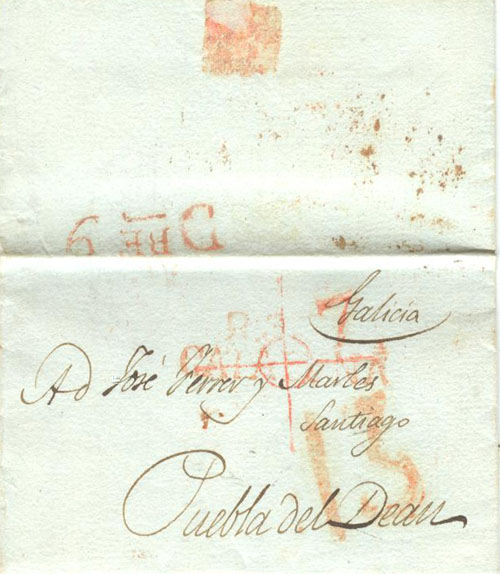 DRE 9
Galicia
7
A D José Ferrer y Marles
Santiago
13
Puebla del Dean